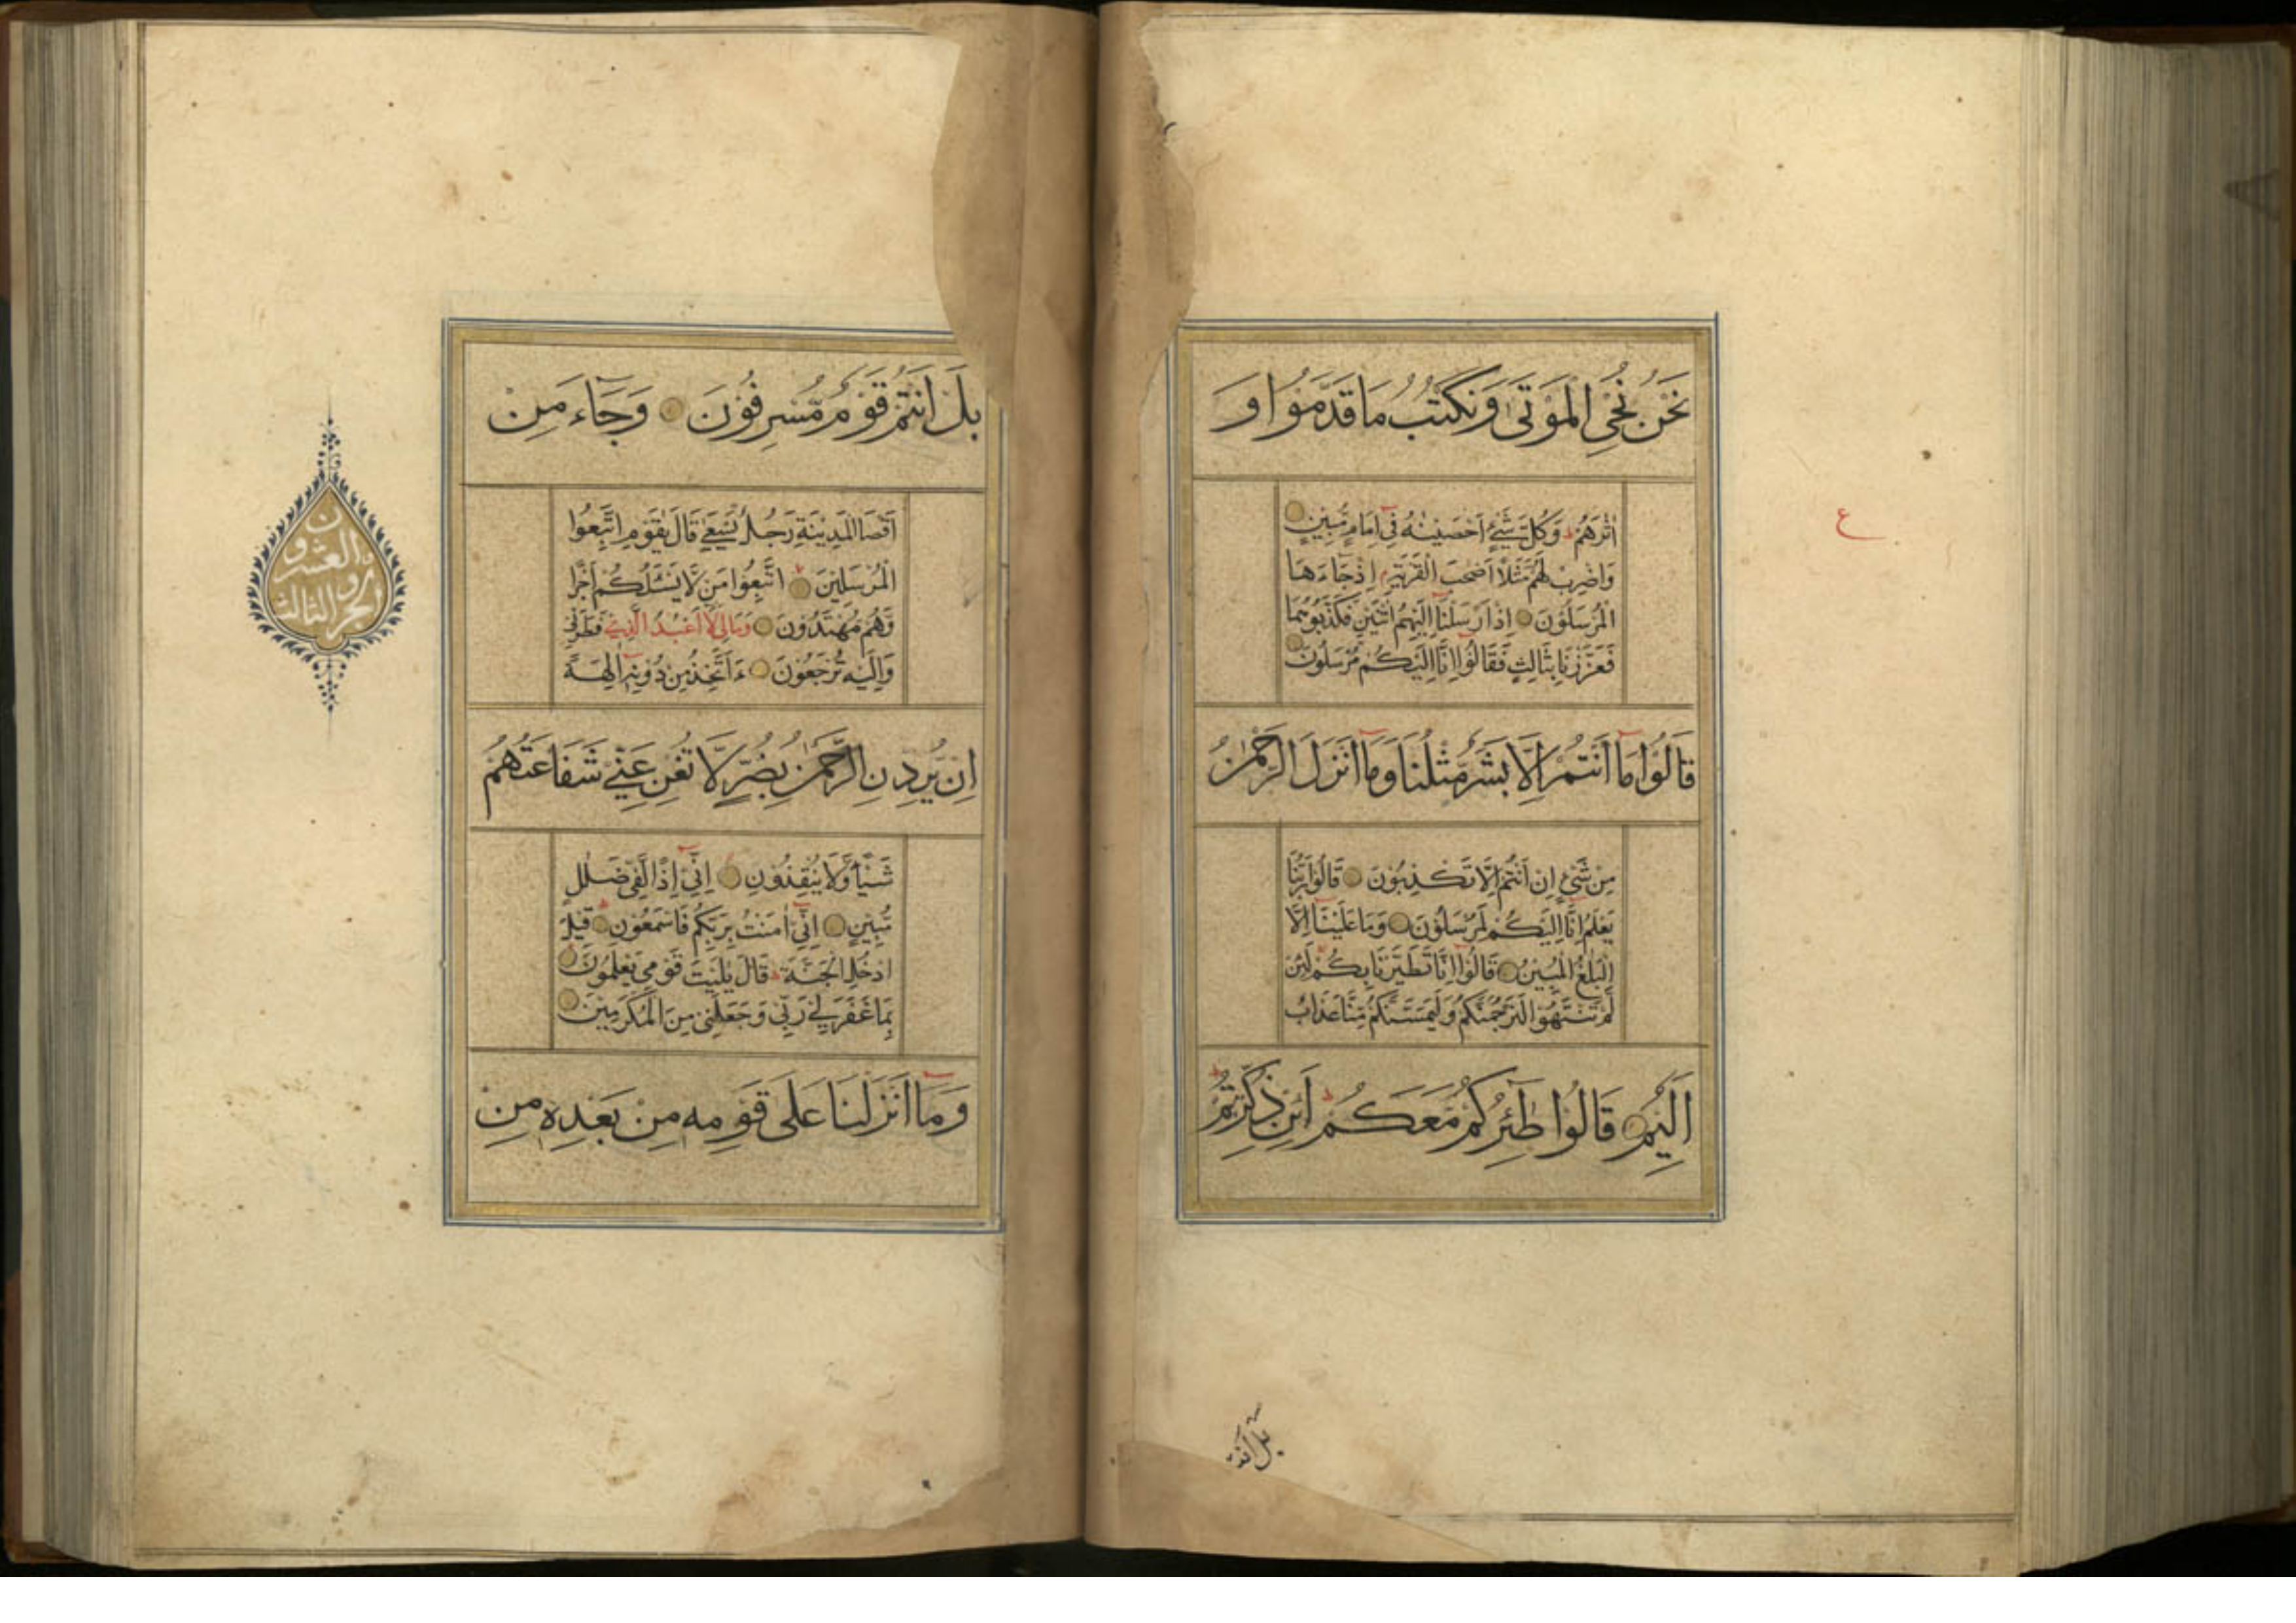 نَحْنُ نُحْيِ الْمَوْتَىٰ وَنَكْتُبُ مَا قَدَّمُوا وَ
اٰثٰرَهُمْ ط وَكُلَّ شَيْءٍ اَحْصَيْنٰهُ فِيٓ اِمَامٍ مُّبِيْنٍ
وَاضْرِبْ لَهُمْ مَّثَلًا اَصْحٰبَ الْقَرْيَةِ م اِذْ جَآءَهَا
الْمُرْسَلُوْنَ اِذْ اَرْسَلْنَآ اِلَيْهِمُ اثْنَيْنِ فَكَذَّبُوْهُمَا
فَعَزَّزْنَا بِثَالِثٍ فَقَالُوْٓا اِنَّآ اِلَيْكُمْ مُّرْسَلُوْنَ
قَالُوْا مَآ اَنْتُمْ اِلَّا بَشَرٌ مِّثْلُنَا وَمَآ اَنْزَلَ الرَّحْمٰنُ
مِنْ شَيْءٍ اِنْ اَنْتُمْ اِلَّا تَكْذِبُوْنَ قَالُوْا رَبُّنَا
يَعْلَمُ اِنَّآ اِلَيْكُمْ لَمُرْسَلُوْنَ وَمَا عَلَيْنَآ اِلَّا
الْبَلٰغُ الْمُبِيْنُ قَالُوْٓا اِنَّا تَطَيَّرْنَا بِكُمْ لَئِنْ
لَّمْ تَنْتَهُوْا لَنَرْجُمَنَّكُمْ وَلَيَمَسَّنَّكُمْ مِّنَّا عَذَابٌ
اَلِيْمٌ قَالُوْا طٰٓئِرُكُمْ مَّعَكُمْ ط اَئِنْ ذُكِّرْتُمْ ط
ع
بل انتم
بَلْ اَنْتُمْ قَوْمٌ مُّسْرِفُوْنَ وَجَآءَ مِنْ
اَقْصَا الْمَدِيْنَةِ رَجُلٌ يَّسْعٰى قَالَ يٰقَوْمِ اتَّبِعُوا
الْمُرْسَلِيْنَ اتَّبِعُوْا مَنْ لَّا يَسْـَٔلُكُمْ اَجْرًا
وَّهُمْ مُّهْتَدُوْنَ وَمَا لِيَ لَآ اَعْبُدُ الَّذِيْ فَطَرَنِيْ
وَاِلَيْهِ تُرْجَعُوْنَ ءَاَتَّخِذُ مِنْ دُوْنِهٖٓ اٰلِهَةً
اِنْ يُّرِدْنِ الرَّحْمٰنُ بِضُرٍّ لَّا تُغْنِ عَنِّيْ شَفَاعَتُهُمْ
شَيْـًٔا وَّلَا يُنْقِذُوْنِ اِنِّيٓ اِذًا لَّفِيْ ضَلٰلٍ
مُّبِيْنٍ اِنِّيٓ اٰمَنْتُ بِرَبِّكُمْ فَاسْمَعُوْنِ ط قِيْلَ
ادْخُلِ الْجَنَّةَ ط قَالَ يٰلَيْتَ قَوْمِيْ يَعْلَمُوْنَ
بِمَا غَفَرَ لِيْ رَبِّيْ وَجَعَلَنِيْ مِنَ الْمُكْرَمِيْنَ
وَمَآ اَنْزَلْنَا عَلٰى قَوْمِهٖ مِنْ بَعْدِهٖ مِنْ
الجزو الثالث والعشرون